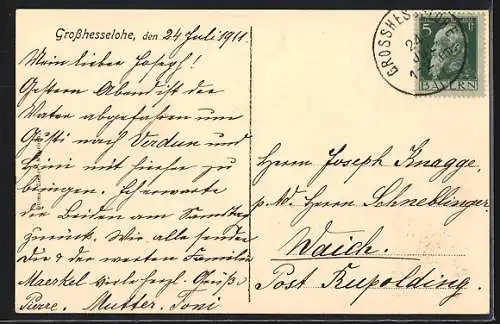 Großhesselohe, den 24 Juli 1911.
Mein lieber Joseph!
Gestern Abend ist der
Vater abgefahren um
Gusti nach Verdun und
Heini mit hierher zu
bringen. Ich erwarte
die Beiden am Samstag
zurück. Wir alle senden
Dir & der werten Familie
Maerkel viele herzl. Grüße
Pierre. Mutter. Toni
GROSSHES
24
5
BAYERN
Herrn Joseph Knagge,
p. Ad. Herrn Schneblinger
Waich.
Post Rupolding.